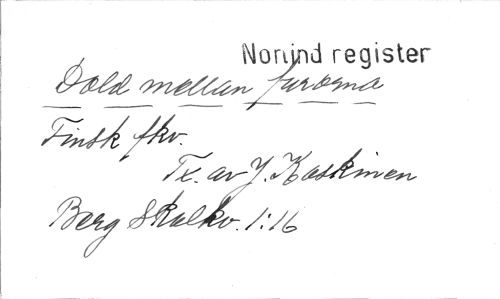 Nonind register
Dold mellan furorna
Finsk fkv.
Tx. av Y. Koskinen
Berg Skolkv. 1:16